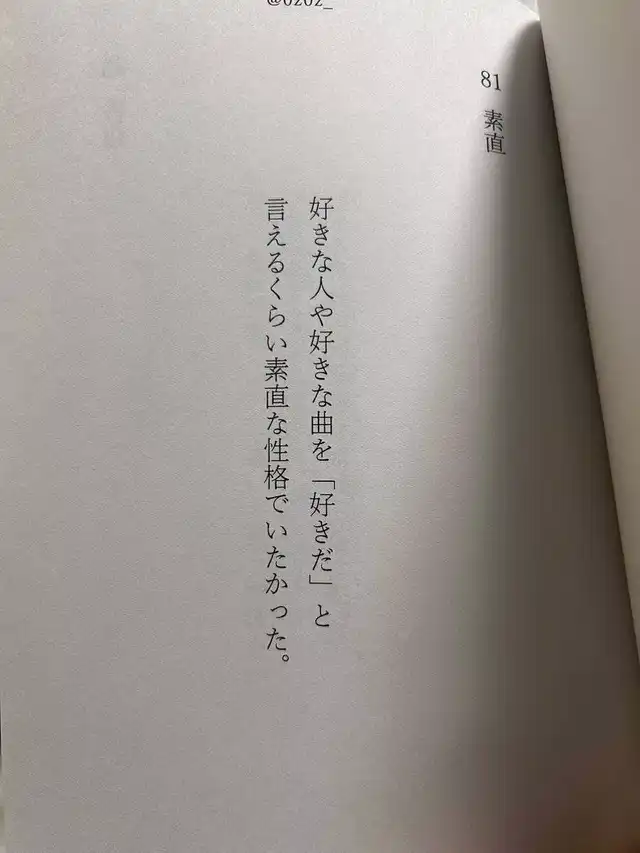 @0z0z_
81 素直
好きな人や好きな曲を「好きだ」と
言えるくらい素直な性格でいたかった。